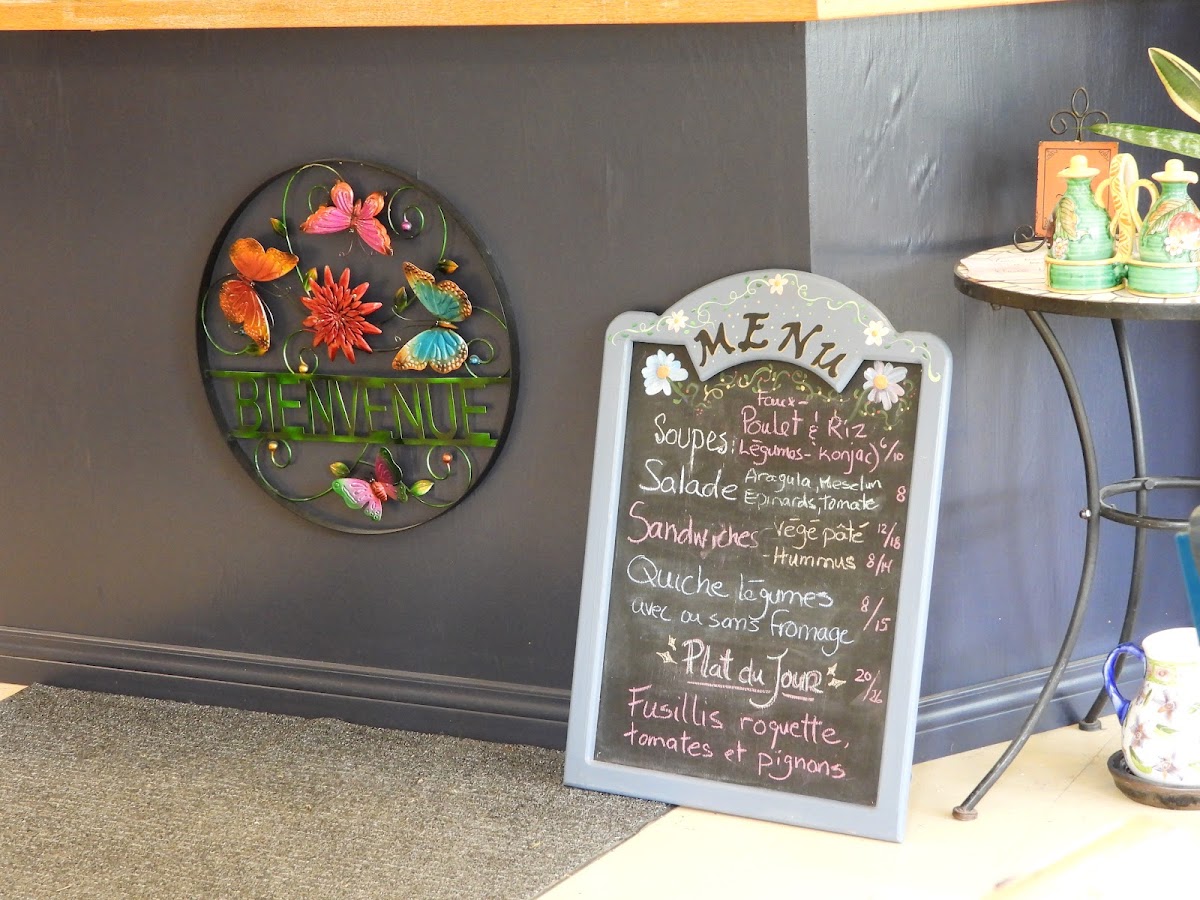 BIENVENUE
MENU
Faux-
Soupes: Poulet & Riz
Légumes-Konjac) 6/10
Salade Aragula, Meselun
Épinards, tomate 8
Sandwiches -Végé pâté 12/18
-Hummus 8/14
Quiche légumes
avec ou sans fromage 8/15
Plat du Jour 20/26
Fusillis roquette,
tomates et pignons